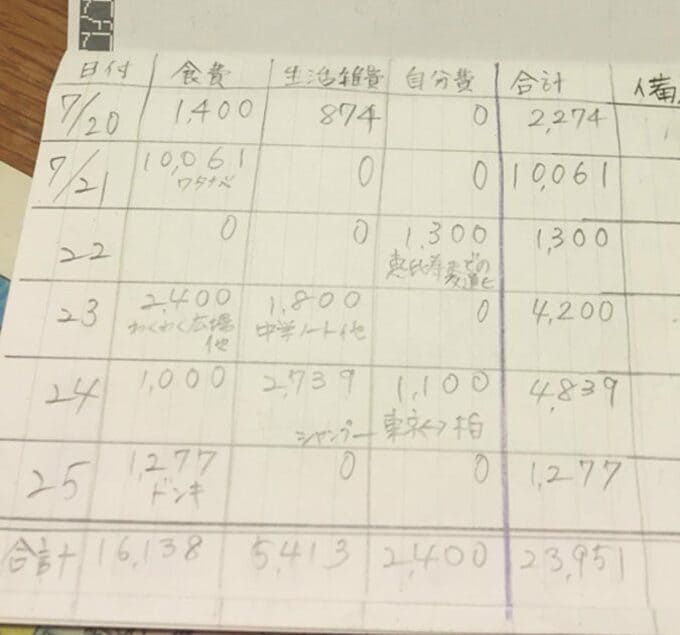 日付 食費 生活雑費 自分費 合計 備
7/20 1,400 874 0 2,274
7/21 10,061 0 0 10,061
ワタナベ
22 0 0 1,300 1,300
恵比寿までの
交通ヒ
23 2,400 1,800 0 4,200
わくわく広場 中学ノート他
他
24 1,000 2,739 1,100 4,839
シャンプー 東京↔柏
25 1,277 0 0 1,277
ドンキ
合計 16,138 5,413 2,400 23,951